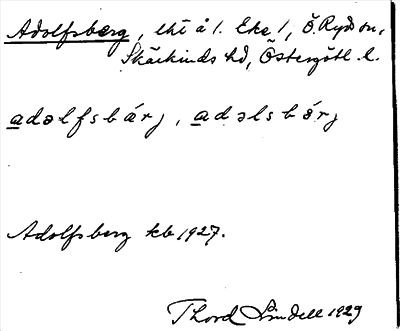 Adolfsberg, lht å l. Eke l, Ö. Ryd sn,
Skärkinds hd, Östergötl. l.
adəlfsbárj, adəlsbárj
Adolfsberg kb 1927.
Thord Lindell 1929